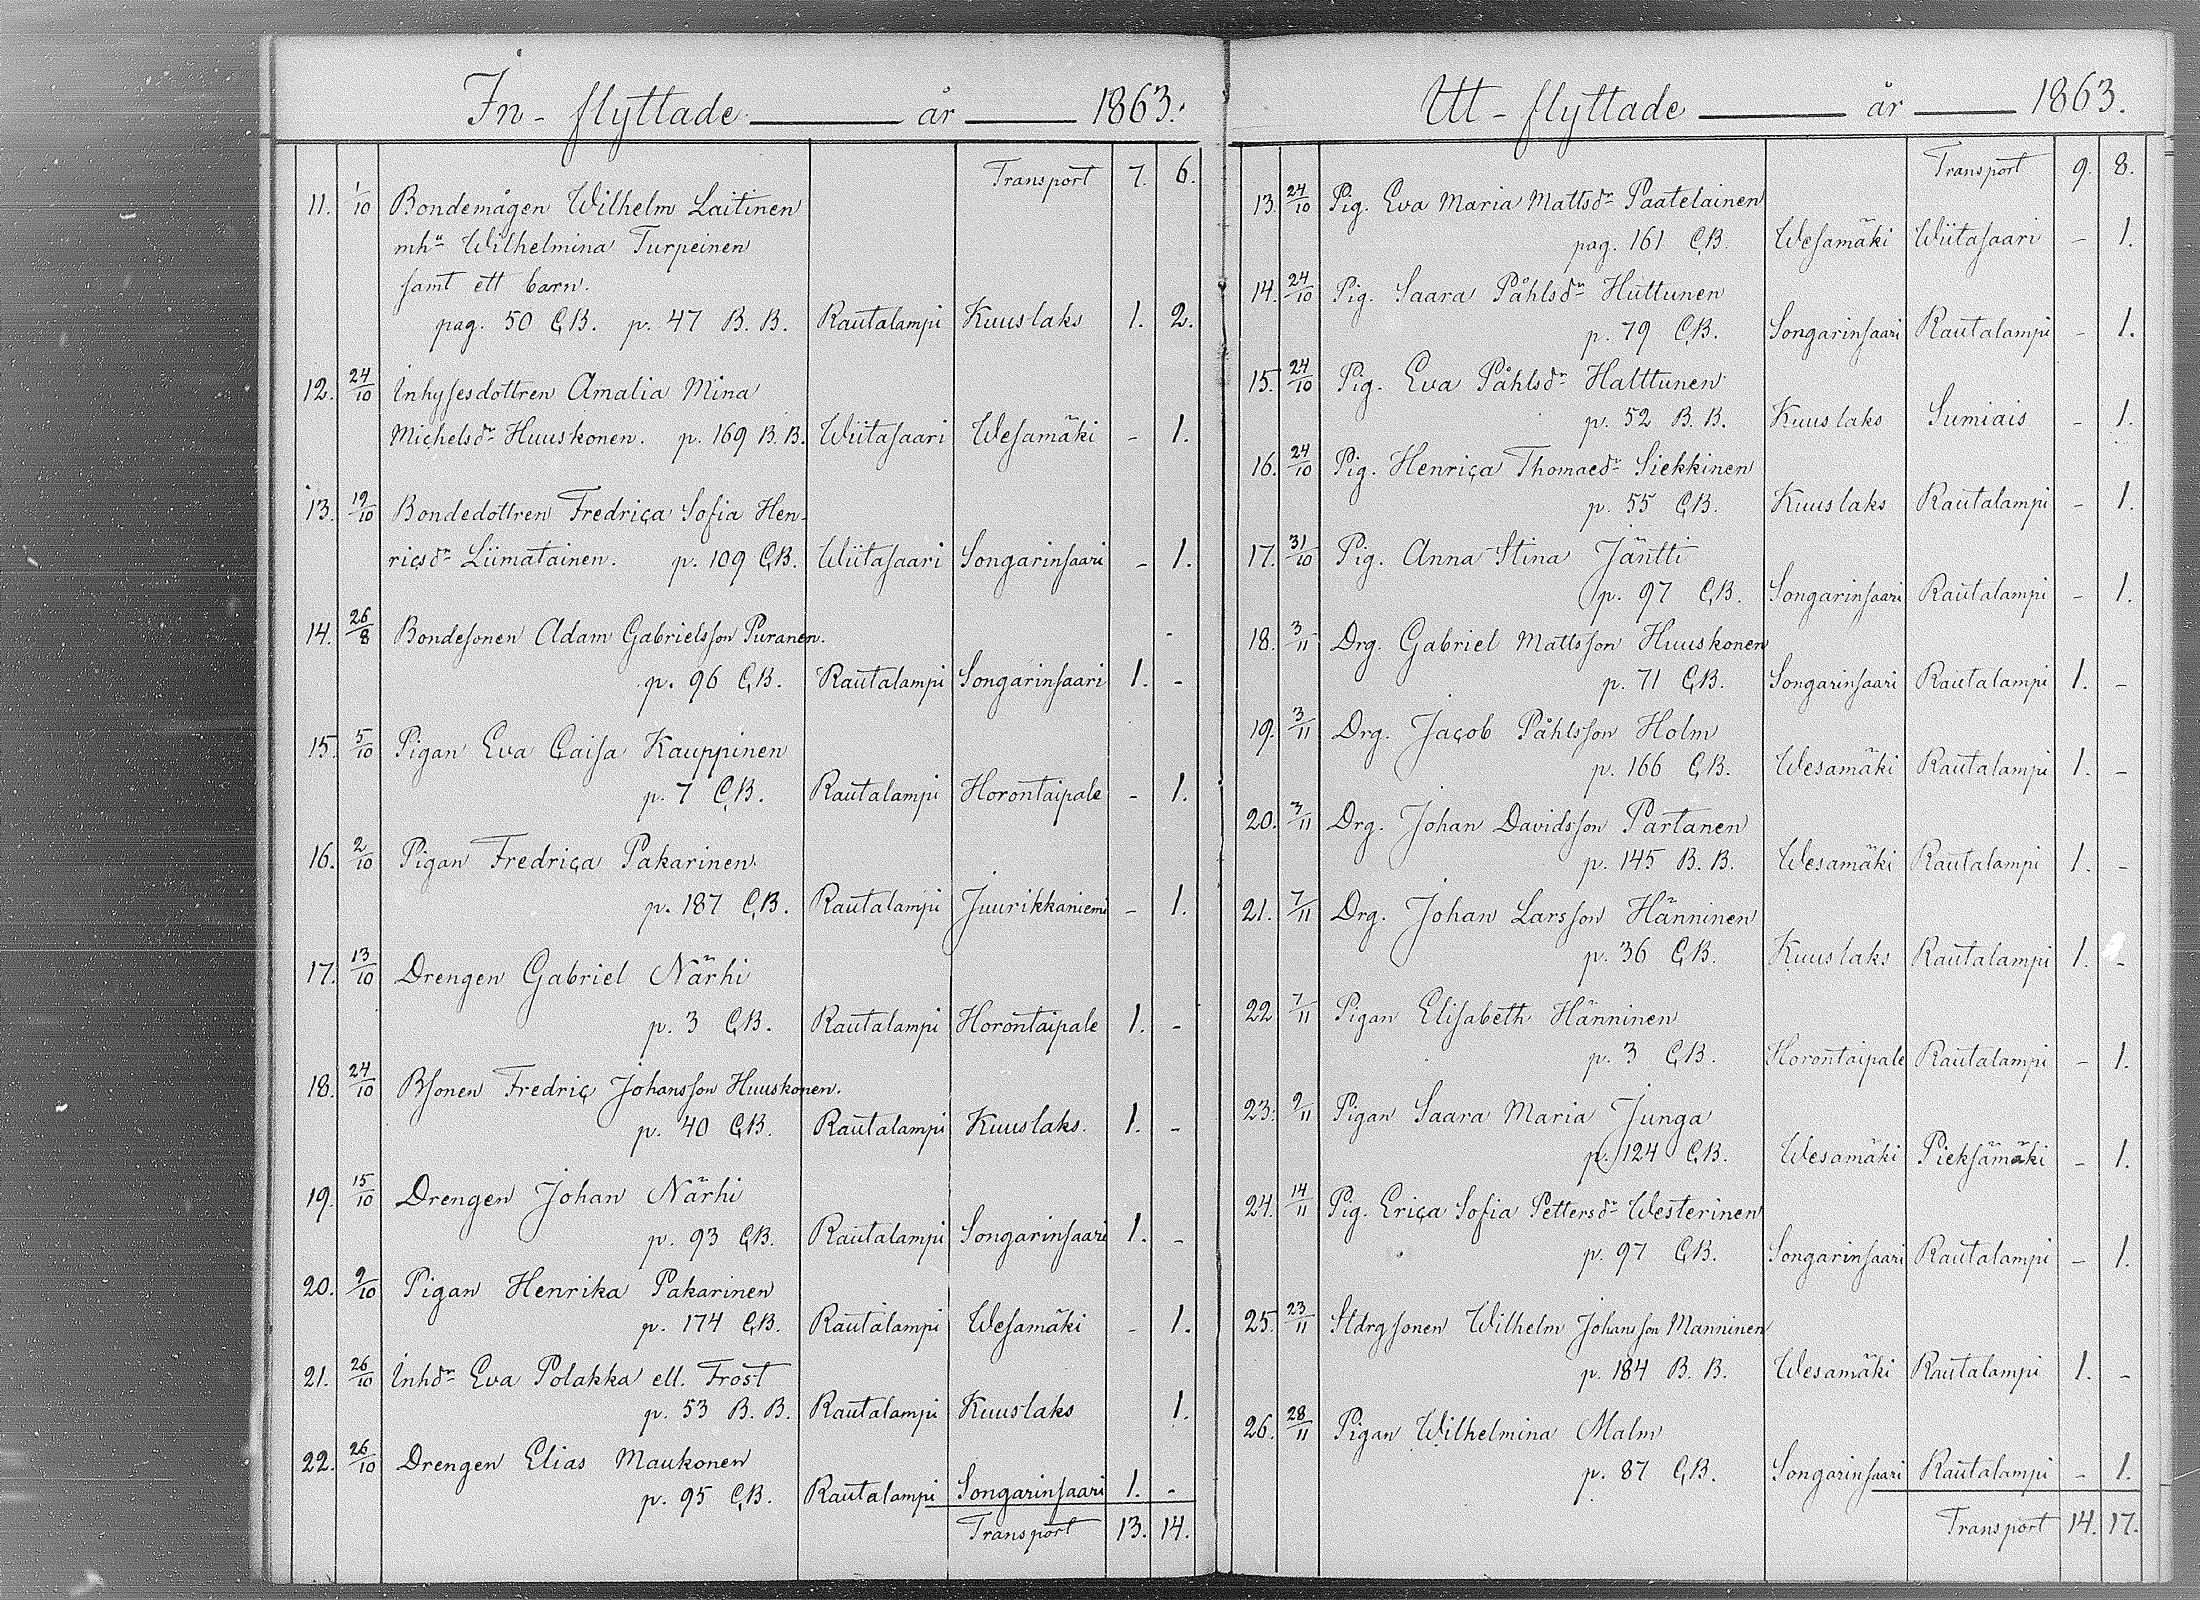 In-flyttade år 1863.
Transport 7. 6.
11. 1/10 Bondemågen Wilhelm Laitinen
mhu Wilhelmina Turpeinen
samt ett barn.
pag. 50 C,B. p. 47 B.B. Rautalampi Kuuslaks 1. 2.
12. 24/10 Inhysesdottren Amalia Mina
Michelsdr Huuskonen. p. 169 B.B. Wiitasaari Wesamäki - 1.
13. 19/10 Bondedottren Fredrica Sofia Hen-
ricsdr Liimatainen. p. 109 C,B. Wiitasaari Songarinsaari - 1.
14. 26/8 Bondesonen Adam Gabrielsson Puranen.
p. 96 C,B. Rautalampi Songarinsaari 1. -
15. 5/10 Pigan Eva Caisa Kauppinen
p. 7 C,B. Rautalampi Horontaipale - 1.
16. 2/10 Pigan Fredrica Pakarinen
p. 187 C,B. Rautalampi Juurikkaniemi - 1.
17. 13/10 Drengen Gabriel Närhi
p. 3 C,B. Rautalampi Horontaipale 1. -
18. 24/10 Bsonen Fredric Johansson Huuskonen.
p. 40 C,B. Rautalampi Kuuslaks. 1. -
19. 15/10 Drengen Johan Närhi
p. 93 C,B. Rautalampi Songarinsaari 1. -
20. 9/10 Pigan Henrika Pakarinen
p. 174 C,B. Rautalampi Wesamäki - 1.
21. 26/10 Inhdr Eva Polakka ell. Frost
p. 53 B.B. Rautalampi Kuuslaks 1.
22. 26/10 Drengen Elias Maukonen
p. 95 C,B. Rautalampi Songarinsaari 1. -
Transport 13. 14.
Utt-flyttade år 1863.
Transport 9. 8.
13. 24/10 Pig. Eva Maria Mattsdr Paatelainen
pag. 161 C,B. Wesamäki Wiitasaari - 1.
14. 24/10 Pig. Saara Påhlsdr Huttunen
p. 79 C,B. Songarinsaari Rautalampi - 1.
15. 24/10 Pig. Eva Påhlsdr Halttunen
p. 52 B.B. Kuuslaks Sumiais - 1.
16. 24/10 Pig. Henrica Thomaedr Siekkinen
p. 55 C,B. Kuuslaks Rautalampi - 1.
17. 31/10 Pig. Anna Stina Jäntti
p. 97 C,B. Songarinsaari Rautalampi - 1.
18. 3/11 Drg. Gabriel Mattsson Huuskonen
p. 71 C,B. Songarinsaari Rautalampi 1. -
19. 3/11 Drg. Jacob Påhlsson Holm
p. 166 C,B. Wesamäki Rautalampi 1. -
20. 3/11 Drg. Johan Davidsson Partanen
p. 145 B.B. Wesamäki Rautalampi 1. -
21. 7/11 Drg. Johan Larsson Hänninen
p. 36 C,B. Kuuslaks Rautalampi 1. -
22 7/11 Pigan Elisabeth Hänninen
p. 3 C,B. Horontaipale Rautalampi - 1.
23. 9/11 Pigan Saara Maria Junga
p. 124 C,B. Wesamäki Pieksämäki - 1.
24. 14/11 Pig. Erica Sofia Pettersdr Westerinen
p. 97 C,B. Songarinsaari Rautalampi - 1.
25. 23/11 Stdrgsonen Wilhelm Johansson Manninen
p. 184 B.B. Wesamäki Rautalampi 1. -
26. 28/11 Pigan Wilhelmina Malm
p. 87 C,B. Songarinsaari Rautalampi - 1.
Transport 14. 17.